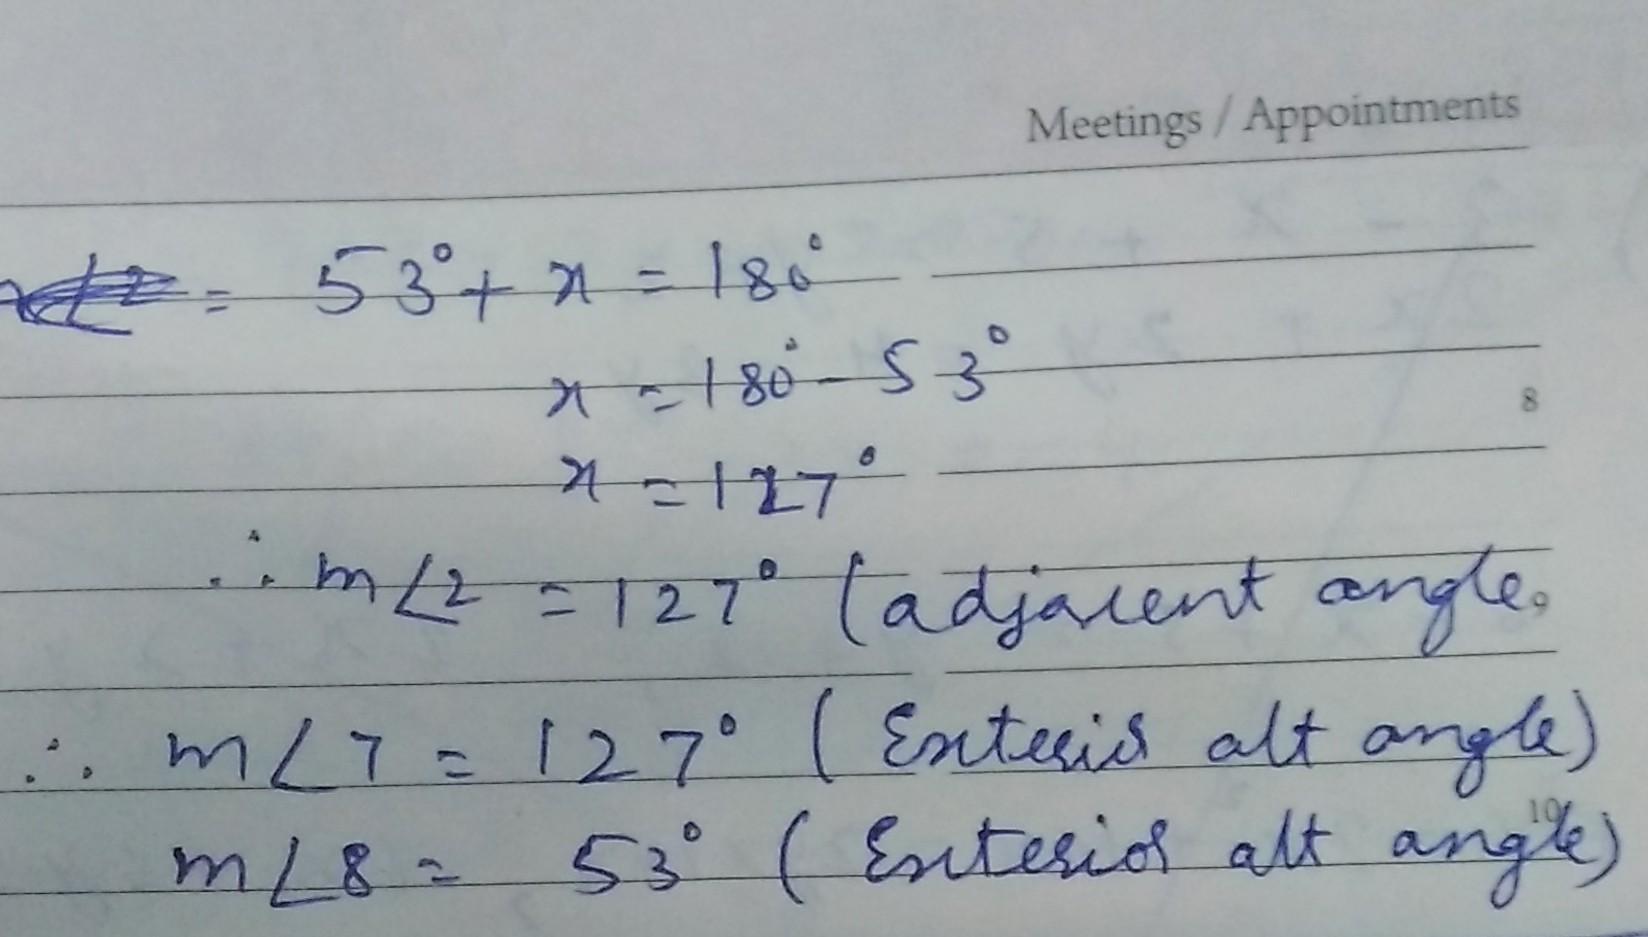 Meetings / Appointments
= 53° + x = 180°
x = 180° - 53°
8
x = 127°
∴ m∠2 = 127° (adjacent angle
9
∴ m∠7 = 127° (Exterior alt angle)
10
m∠8 = 53° (Exterior alt angle)